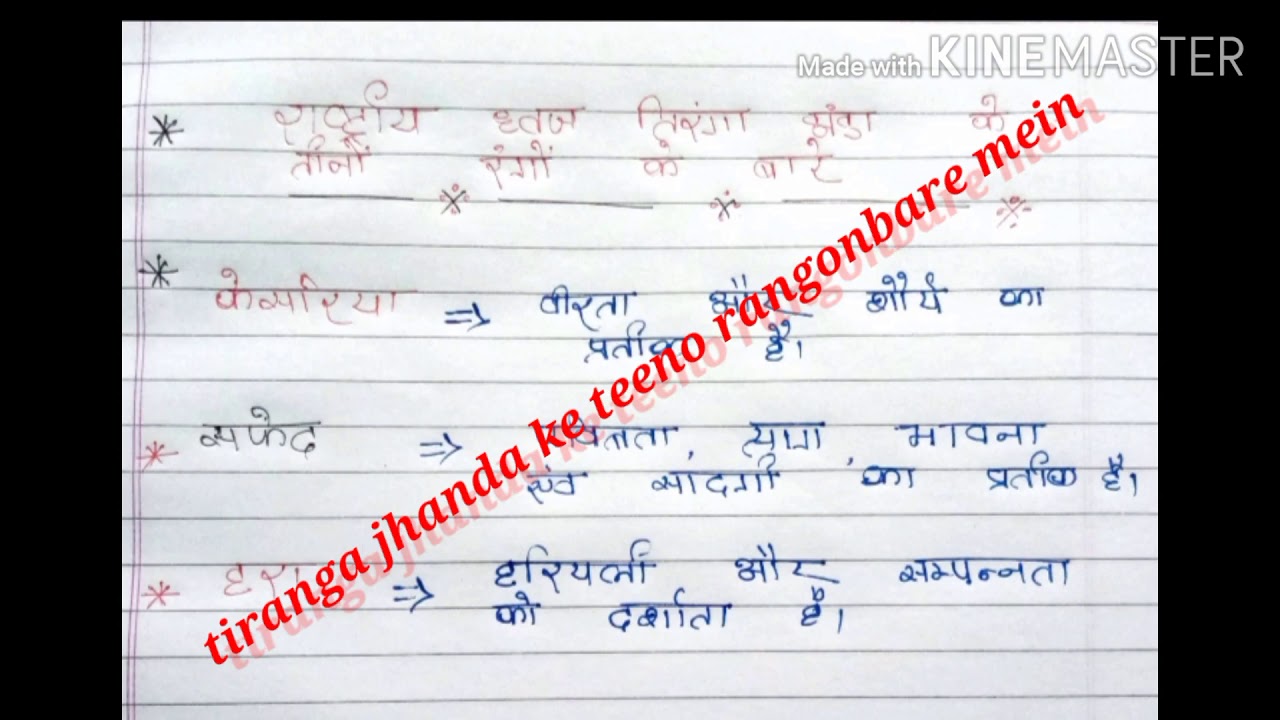 Made with KINEMASTER
राष्ट्रीय ध्वज तिरंगा झंडा के
तीनों रंगों के बारे
केसरिया ⇒ वीरता और शौर्य का
प्रतीक है।
सफेद ⇒ त्याग, भावना
एवं सादगी का प्रतीक है।
हरा ⇒ हरियाली और सम्पन्नता
को दर्शाता है।
tiranga jhanda ke teeno rangonbare mein